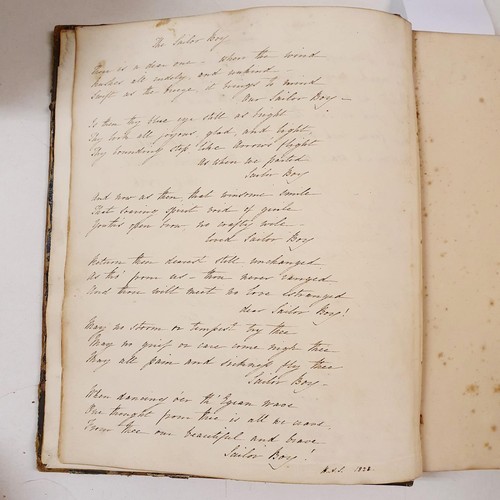 The Sailor Boy
There is a dear one, when the wind
Rushes all rudely, and unkind
Swift as the surge, it brings to mind
Our Sailor Boy –
Is then thy blue eye still as bright
Thy look all joyous, glad, and light,
Thy bounding step like Arrows flight
As when we parted
Sailor Boy
And now as then that winsome smile
That soaring spirit void of guile
open brow, no crafty wile
loved Sailor Boy
Return then dearest still unchanged
As tho' from us – thou never ranged
And thou will meet no love estranged
dear Sailor Boy!
May no storm or tempest try thee
May no grief or care come nigh thee
May all pain and sickness fly thee
Sailor Boy –
When dancing o'er th' Egean wave
One thought from thee is all we crave
From thee our beautiful and brave
Sailor Boy!